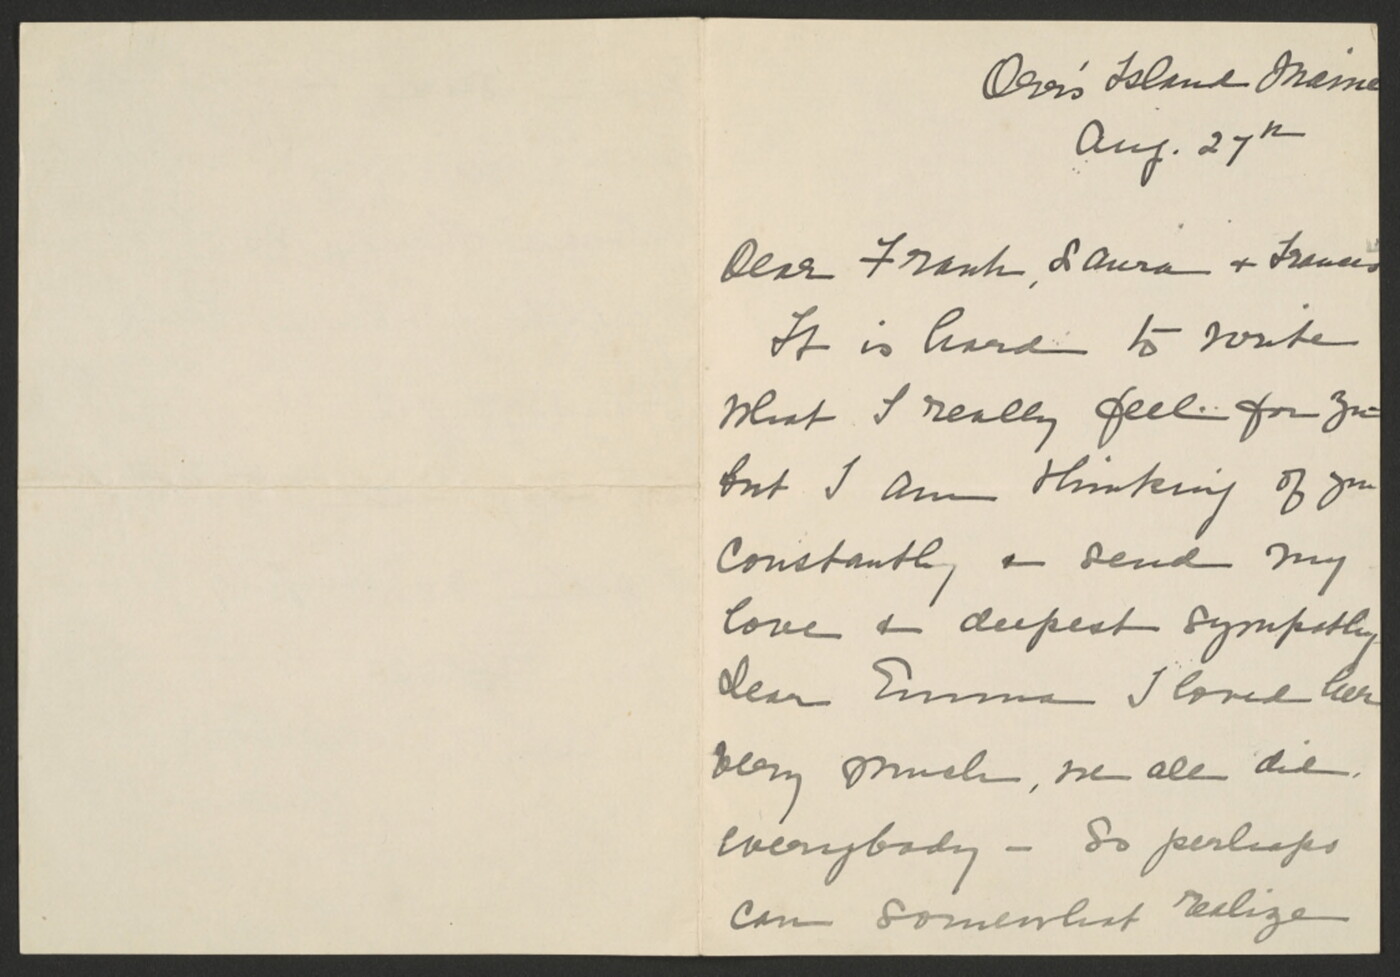 Orr's Island Maine
Aug. 27th
Dear Frank, Laura + Francis
It is hard to write
what I really feel for you
but I am thinking of you
constantly + send my
love + deepest sympathy
Dear Emma I loved her
very much, we all did.
everybody - So perhaps
can somewhat realize